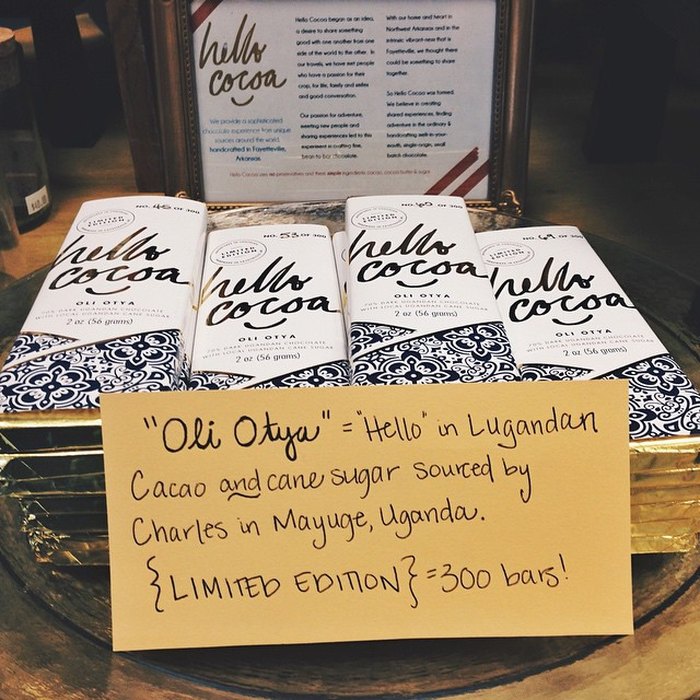 hello
cocoa
We provide a sophisticated
chocolate experience from unique
sources around the world,
handcrafted in Fayetteville,
Arkansas.
Hello Cocoa began as an idea,
a desire to share something
good with one another from one
side of the world to the other. In
our travels, we have met people
who have a passion for their
crop, for life, family and smiles
and good conversation.
Our passion for adventure,
meeting new people and
sharing experiences led to this
experiment in crafting fine,
bean to bar chocolate.
With our home and heart in
Northwest Arkansas and in the
intrinsic vibrant-ness that is
Fayetteville, we thought there
could be something to share
together.
So Hello Cocoa was formed.
We believe in creating
shared experiences, finding
adventure in the ordinary &
handcrafting melt-in-your-
mouth, single-origin, small
batch chocolate.
Hello Cocoa uses no preservatives and three simple ingredients: cacao, cocoa butter & sugar.
NO. 46 OF 300
LIMITED
EDITION
hello
cocoa
OLI OTYA
70% DARK UGANDAN CHOCOLATE
WITH LOCAL UGANDAN CANE SUGAR
2 oz (56 grams)
NO. 53 OF 300
LIMITED
EDITION
hello
cocoa
OLI OTYA
70% DARK UGANDAN CHOCOLATE
WITH LOCAL UGANDAN CANE SUGAR
2 oz (56 grams)
NO. 60 OF 300
LIMITED
EDITION
hello
cocoa
OLI OTYA
70% DARK UGANDAN CHOCOLATE
WITH LOCAL UGANDAN CANE SUGAR
2 oz (56 grams)
NO. 69 OF 300
LIMITED
EDITION
hello
cocoa
OLI OTYA
70% DARK UGANDAN CHOCOLATE
WITH LOCAL UGANDAN CANE SUGAR
2 oz (56 grams)
"Oli Otya" = "Hello" in Lugandan
Cacao and cane sugar sourced by
Charles in Mayuge, Uganda.
{LIMITED EDITION} = 300 bars!